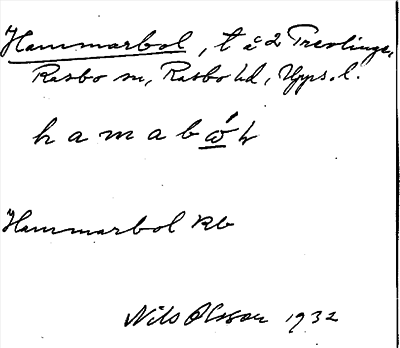 Hammarbol, t å 2 Trevlinge,
Rasbo sn, Rasbo hd, Upps. l.
h a m a b ώ l
Hammarbol kb
Nils Olsson 1932